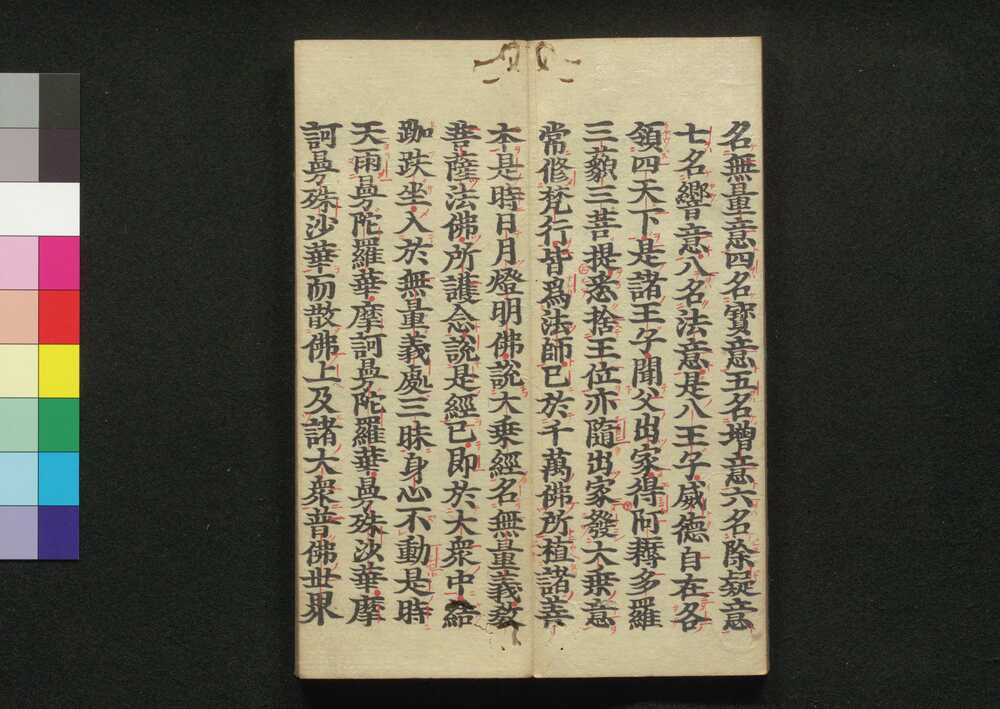 名無量意四名寶意五名增意六名除疑意
七名響意八名法意是八王子威德自在各
領四天下是諸王子聞父出家得阿耨多羅
三藐三菩提悉捨王位亦隨出家發大乘意
常修梵行皆爲法師已於千萬佛所植諸善
本是時日月燈明佛說大乘經名無量義教
菩薩法佛所護念說是經已即於大衆中結
跏趺坐入於無量義處三昧身心不動是時
天雨曼陀羅華摩訶曼陀羅華曼殊沙華摩
訶曼殊沙華而散佛上及諸大衆普佛世界